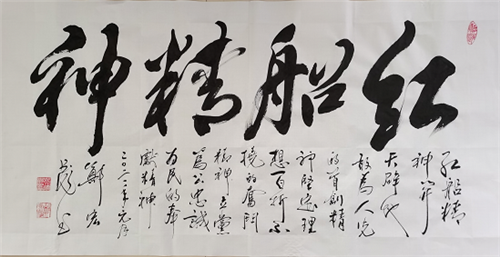 红船精神
红船精
神 开
天辟地
敢为人先
的首创精
神坚定理
想百折不
挠的奋斗
精神立党
为公忠诚
为民的奉
献精神
二〇二二年元月